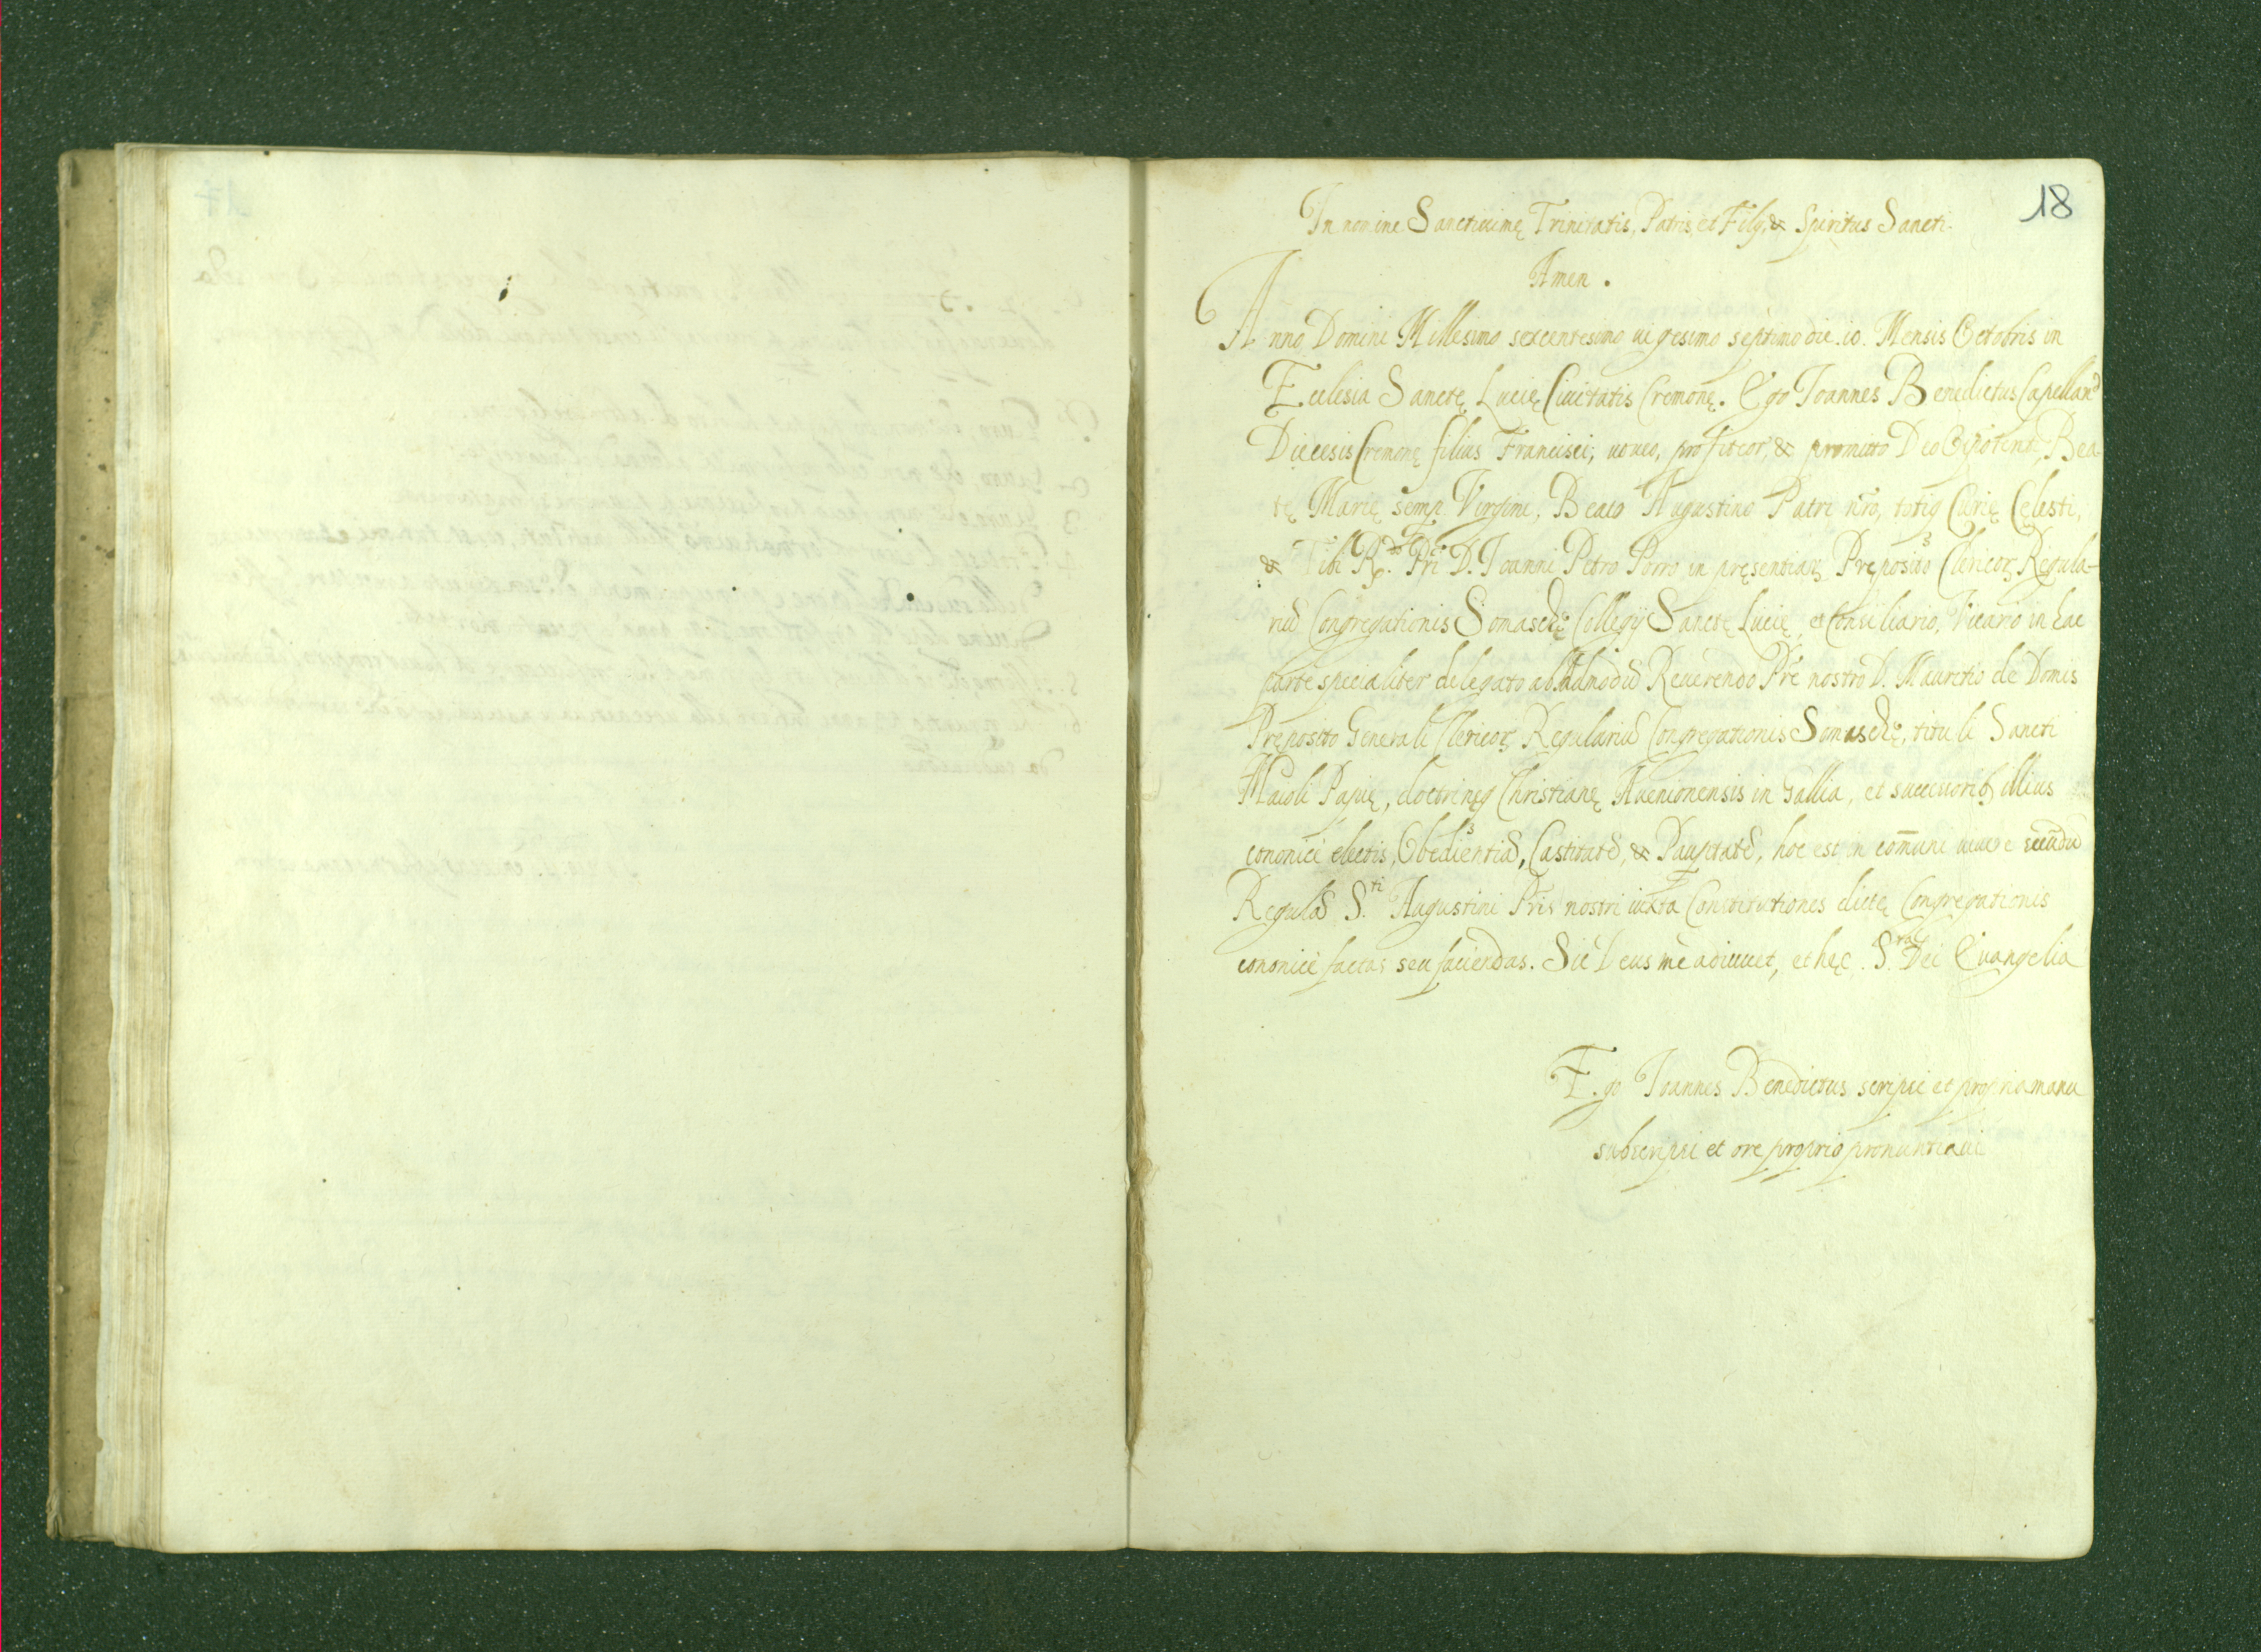 18
In nomine Sanctissimę Trinitatis, Patris, et Filij, & Spiritus Sancti.
Amen.
Anno Domini Millesimo sexcentesimo uigesimo septimo die .10. Mensis Octobris in
Ecclesia Sanctę Lucię Ciuitatis Cremonę. Ego Ioannes Benedictus Capellan9
Diecesis Cremonę filius Francisci, uoueo, profiteor, & promitto Deo Oipotenti, Bea-
tę Marię semp Virgini, Beato Augustino Patri nro, totiq Curię Celesti,
& Tibi R.do Pri D. Ioanni Petro Porro in pręsentiarꝫ Pręposito Clericorꝫ Regula-
riu Congregationis Somaschę Collegij Sanctę Lucię, et Consiliario, Vicario in hac
parte specialiter delegato ab Admodu Reuerendo Pre nostro D. Mauritio de Domis
Pręposito Generali Clericorꝫ Regulariu Congregationis Somaschę, tituli Sancti
Maioli Papię, doctrinęq Christianę Auenionensis in Gallia, et successorib illius
cononicè electis, Obedientia, Castitate, & Paupertate, hoc est in comuni uiuere secundu
Regula S.ti Augustini Pris nostri iuxta Constitutiones dictę Congregationis
cononicè factas seu faciendas. Sic Deus me adiuuet, et hęc .S.ra Dei Euangelia
Ego Ioannes Benedictus scripsi et propria manu
subscripsi et ore proprio pronuntiaui